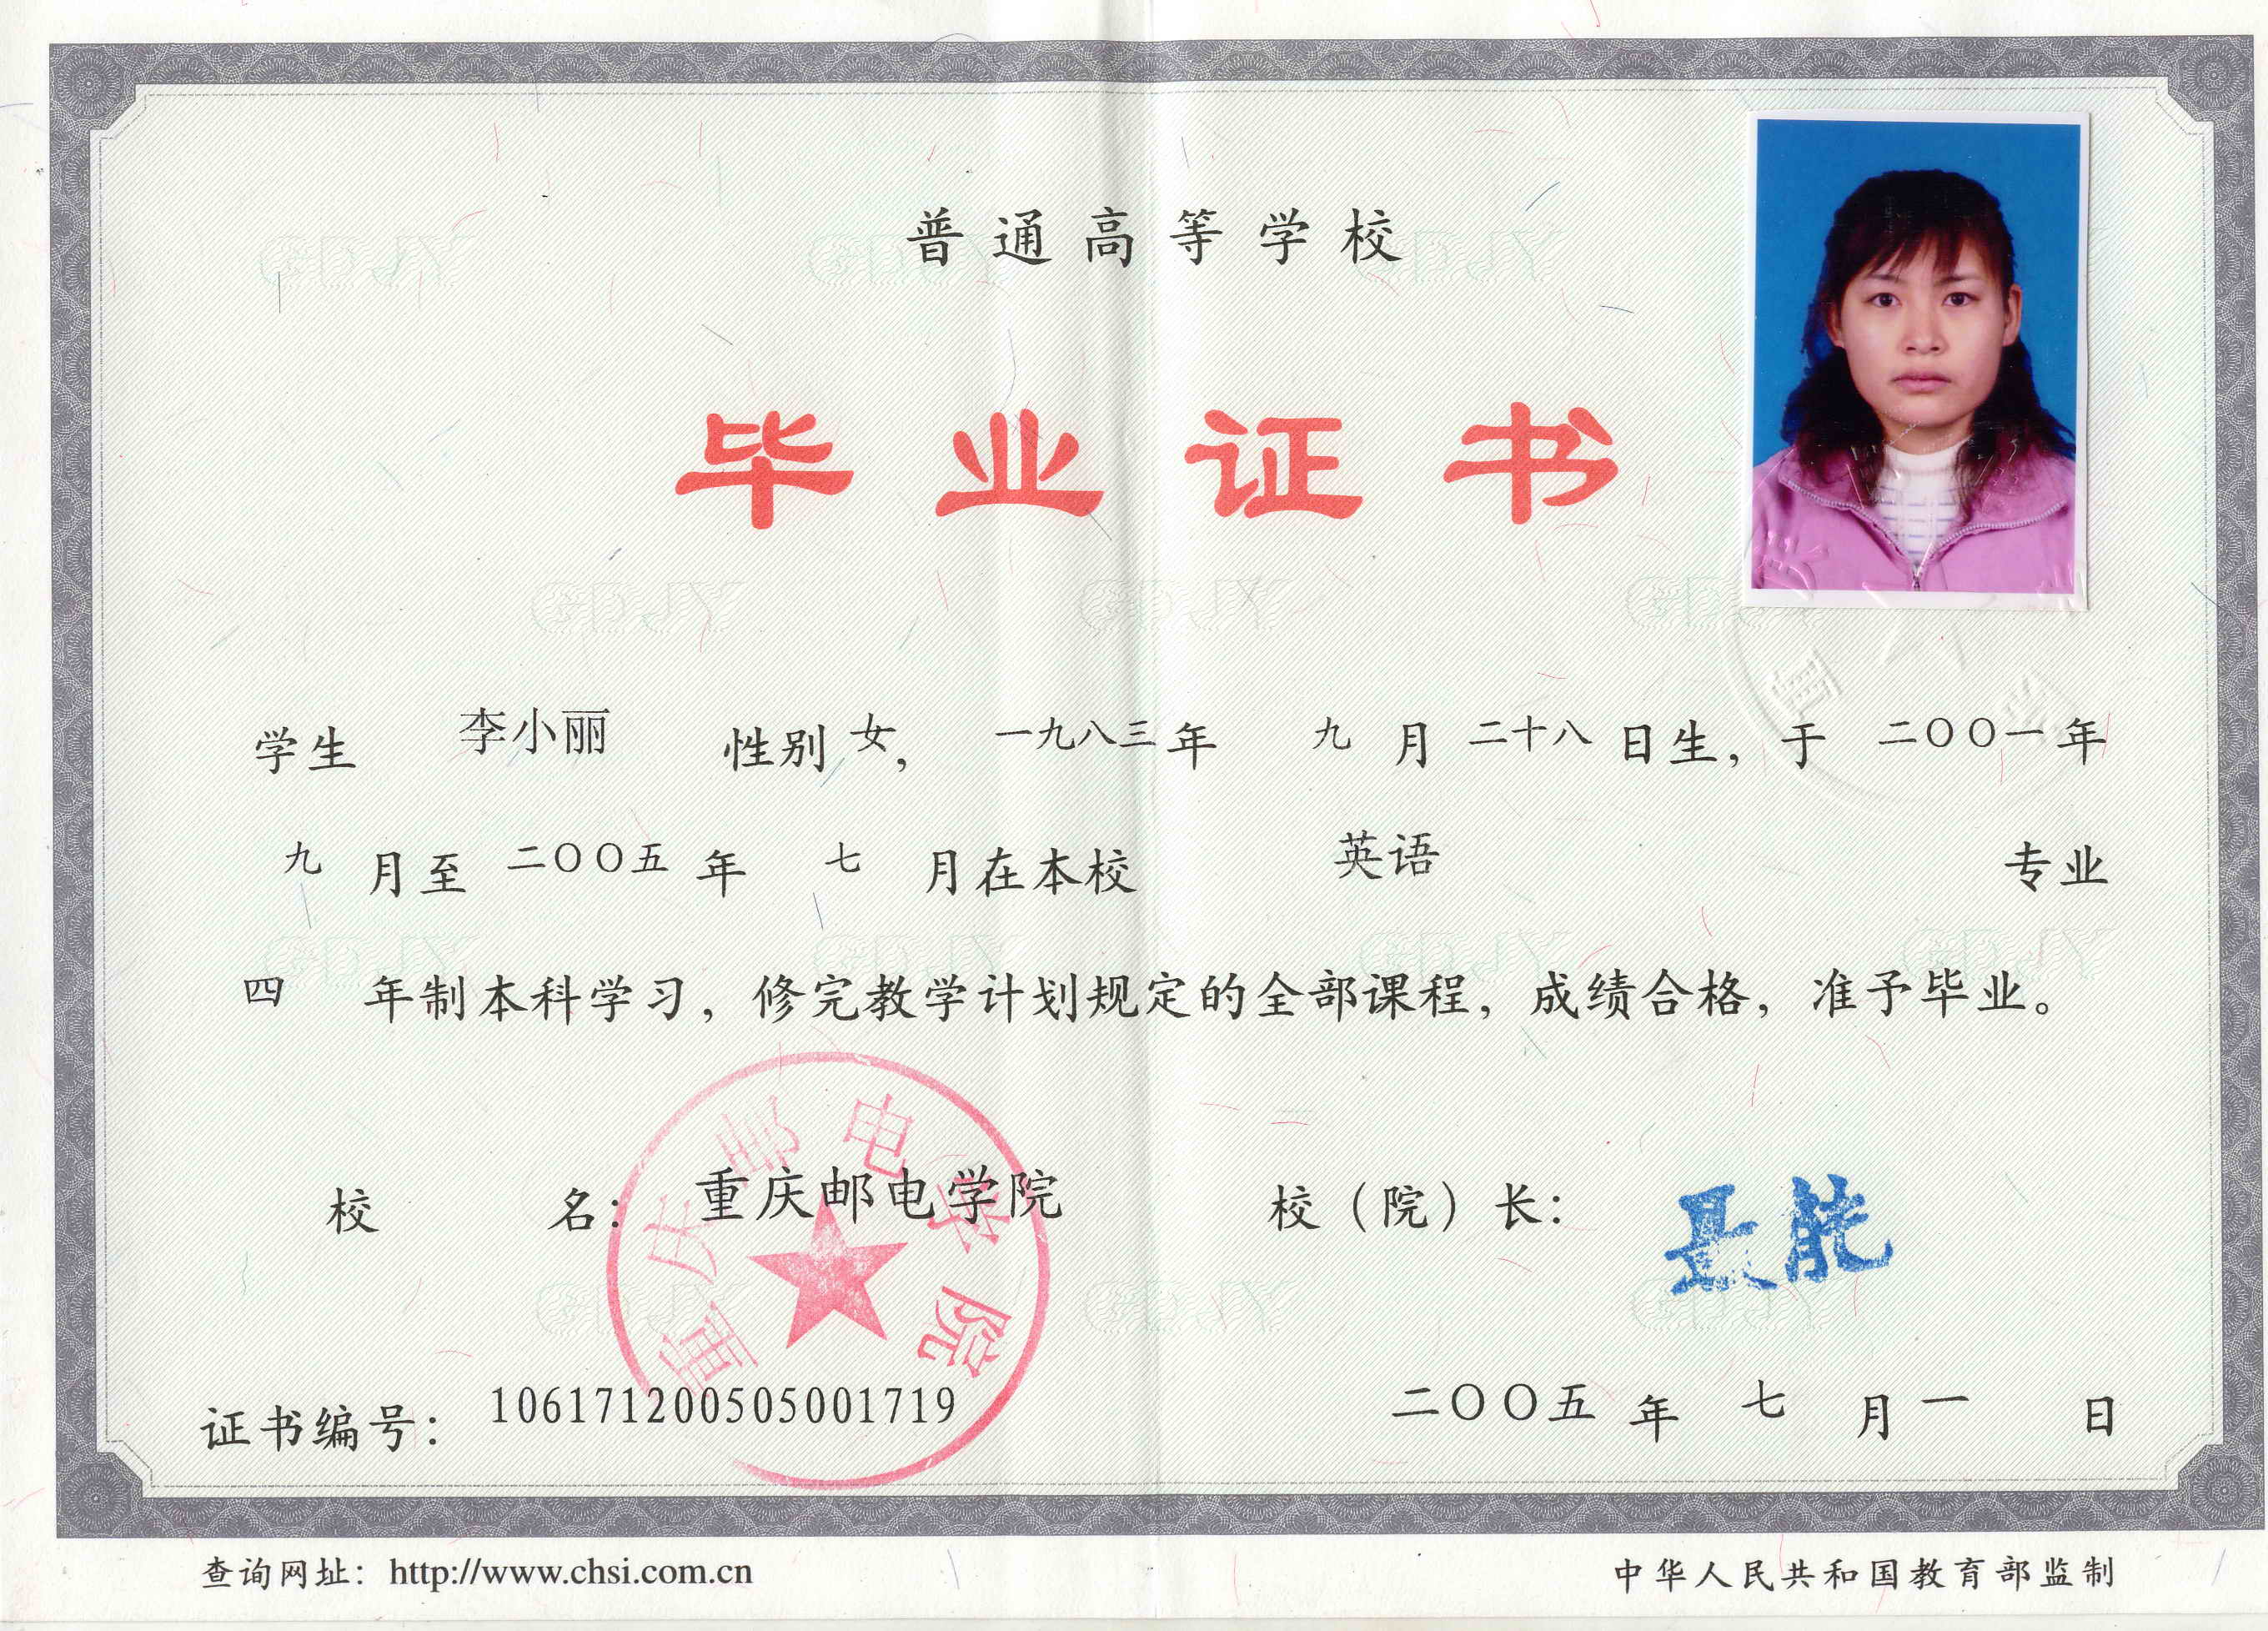 普通高等学校
毕业证书
学生 李小丽 性别 女, 一九八三 年 九 月 二十八 日生, 于 二〇〇一 年
九 月至 二〇〇五 年 七 月在本校 英语 专业
四 年制本科学习, 修完教学计划规定的全部课程, 成绩合格, 准予毕业。
校 名: 重庆邮电学院 校(院)长: 聂能
重庆邮电学院
证书编号: 106171200505001719 二〇〇五 年 七 月 一 日
查询网址: http://www.chsi.com.cn 中华人民共和国教育部监制